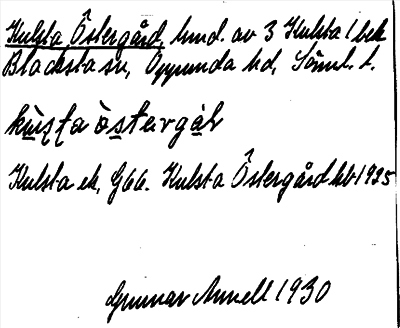 Kulsta Östergård, hmd. av 3 Kulsta 1 bek
Blacksta sn, Oppunda hd, Söml. l.
östergår
Kulsta ek, G66. Kulsta Östergård kb 1925
Gunnar Annell 1930